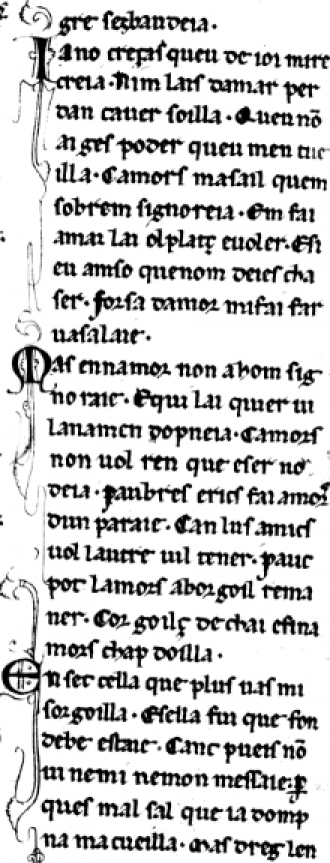 gre seghandeia.
Iano creçais queu de ioi mire
creia. Nim lais damar per
dan cauer soilla. Queu nõ
ai ges poder queu men tue
illa. Camors masail quem
sobrem signoreia. Em fai
amai lai olplatç euoler. Esi
eu amso quenom deies cha
ser. forsa damor mi fai far
uasalaie.
Mas ennamor non ahom sig
noraie. Equi lai quier ui
lanamen dopneia. Camors
non uol ren que eser no
deia. paubres erics fai amor
dun paraie. Can lus amics
uol lautre uil tener. pauc
pot lamors aborgoil rema
ner. Cor goilç dechai efina
mors chap doilla.
En sec cella que plus uas mi
sorgoilla. Esella fui que fon
debe estaie. Canc pueis nõ
ui nemi nemon mesaie. ꝑ
ques mal sal que ia domp
na macueilla. Mas dreg len